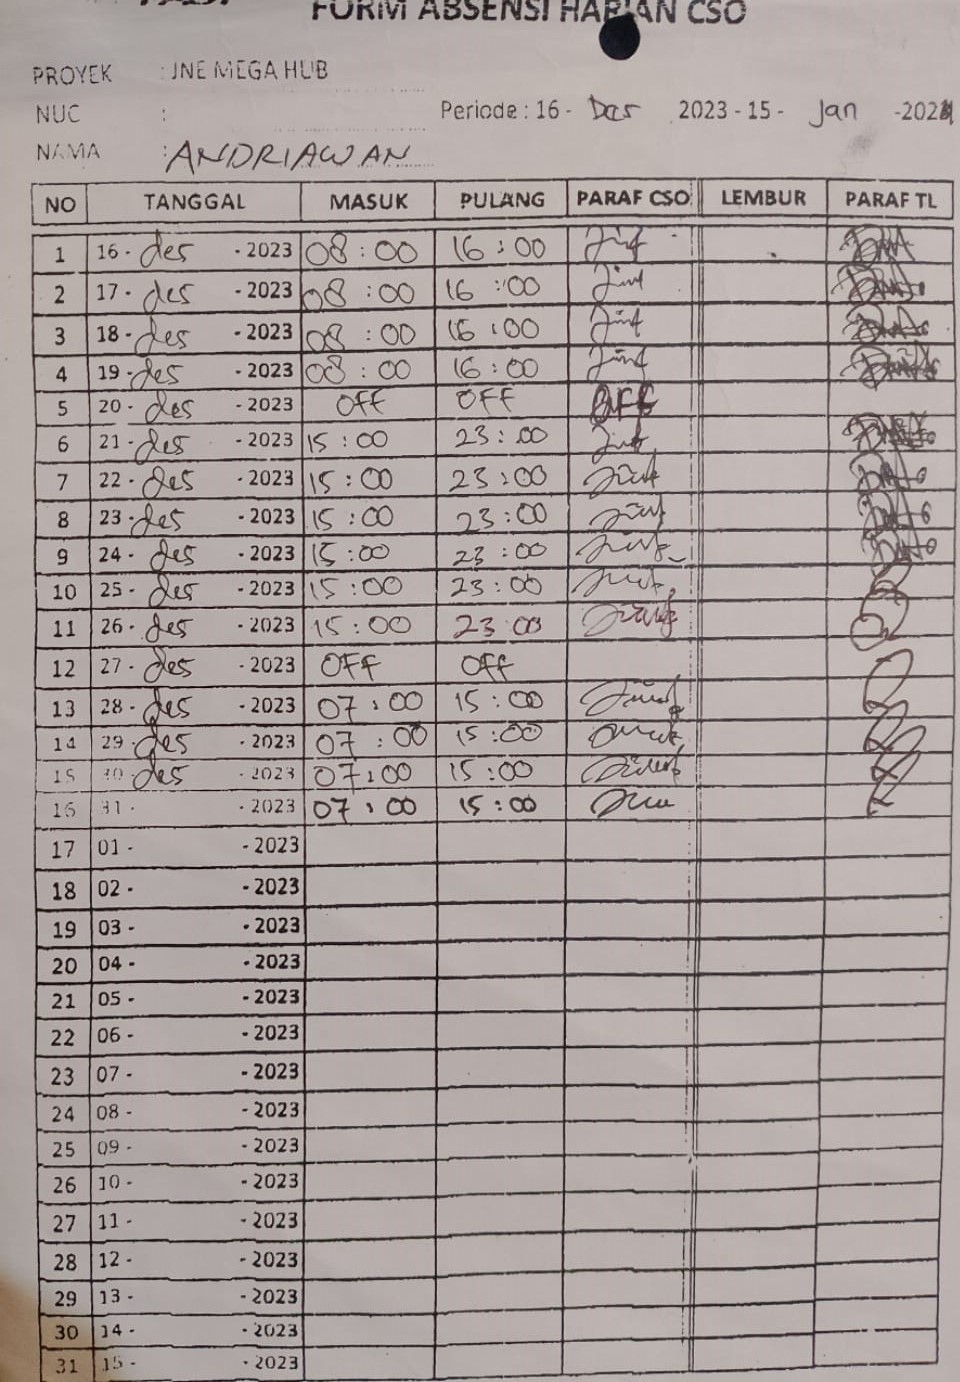 FORM ABSENSI HARIAN CSO
PROYEK : JNE MEGA HUB
NUC : Periode : 16 - Des 2023 - 15 - Jan - 2024
NAMA : ANDRIAWAN
NO TANGGAL MASUK PULANG PARAF CSO LEMBUR PARAF TL
1 16 - des - 2023 08 : 00 16 : 00
2 17 - des - 2023 08 : 00 16 : 00
3 18 - des - 2023 08 : 00 16 : 00
4 19 - des - 2023 08 : 00 16 : 00
5 20 - des - 2023 OFF OFF OFF
6 21 - des - 2023 15 : 00 23 : 00
7 22 - des - 2023 15 : 00 23 : 00
8 23 - des - 2023 15 : 00 23 : 00
9 24 - des - 2023 15 : 00 23 : 00
10 25 - des - 2023 15 : 00 23 : 00
11 26 - des - 2023 15 : 00 23 00
12 27 - des - 2023 OFF OFF
13 28 - des - 2023 07 : 00 15 : 00
14 29 - des - 2023 07 : 00 15 : 00
15 30 - des - 2023 07 : 00 15 : 00
16 31 - - 2023 07 : 00 15 : 00
17 01 - - 2023
18 02 - - 2023
19 03 - - 2023
20 04 - - 2023
21 05 - - 2023
22 06 - - 2023
23 07 - - 2023
24 08 - - 2023
25 09 - - 2023
26 10 - - 2023
27 11 - - 2023
28 12 - - 2023
29 13 - - 2023
30 14 - - 2023
31 15 - - 2023